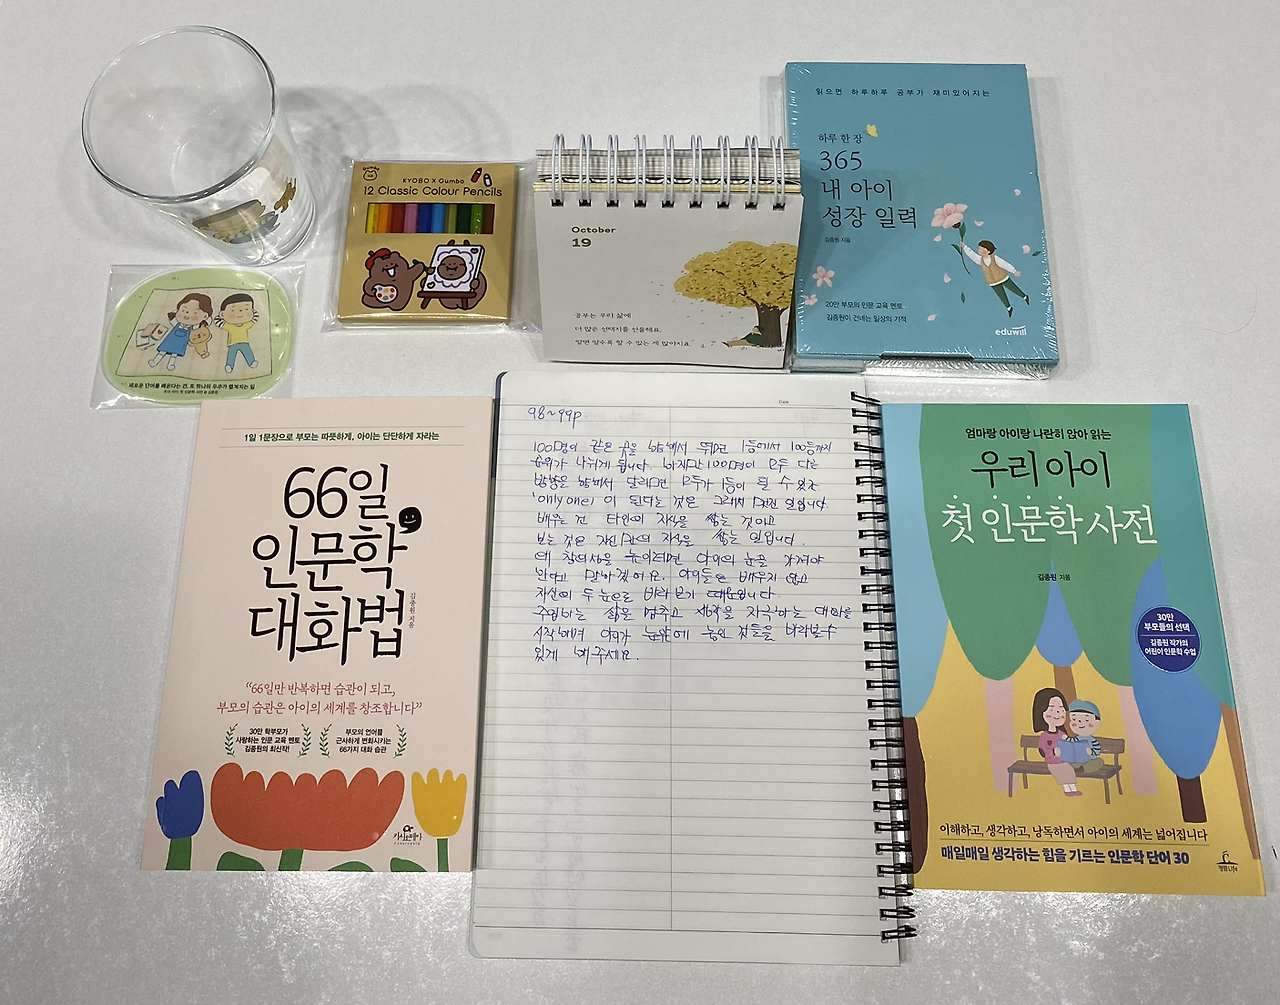 Gumbo
KYOBO X Gumbo
12 Classic Colour Pencils
October
19
공부는 우리 삶에
더 많은 선택지를 선물해요.
알면 알수록 할 수 있는 게 많아지죠.
읽으면 하루하루 공부가 재미있어지는
하루 한 장
365
내 아이
성장 일력
김종원 지음
20만 부모의 인문 교육 멘토
김종원이 건네는 일상의 기적
eduwill
새로운 단어를 배운다는 건, 또 하나의 우주가 펼쳐지는 일
1일 1문장으로 부모는 따뜻하게, 아이는 단단하게 자라는
66일
인문학
대화법
김종원 지음
“66일만 반복하면 습관이 되고,
부모의 습관은 아이의 세계를 창조합니다”
30만 학부모가
사랑하는 인문 교육 멘토
김종원의 최신작!
부모의 언어를
근사하게 변화시키는
66가지 대화 습관
카시오페아
Date
98~99p
100명이 같은 곳을 향해서 뛰면 1등에서 100등까지
순위가 나뉘게 됩니다. 하지만 100명이 모두 다른
방향을 향해서 달리면 모두가 1등이 될 수 있죠
'only one' 이 된다는 것은 그래서 멋진 일입니다.
배우는 건 타인의 지식을 쌓는 것이고
보는 것은 자신만의 지식을 쌓는 일입니다.
더 창의성을 높이려면 아이의 눈을 가져야
한다고 말하겠어요. 아이들은 배우지 않고
자신의 두 눈으로 바라보기 때문입니다.
주입하는 삶을 멈추고 시작을 자극하는 대화를
시작하며 아이가 눈앞에 놓인 것들을 바라볼 수
있게 해주세요.
엄마랑 아이랑 나란히 앉아 읽는
우리 아이
첫 인문학 사전
김종원 지음
30만
부모들의 선택
김종원 작가의
어린이 인문학 수업
이해하고, 생각하고, 낭독하면서 아이의 세계는 넓어집니다
매일매일 생각하는 힘을 기르는 인문학 단어 30
청림Life